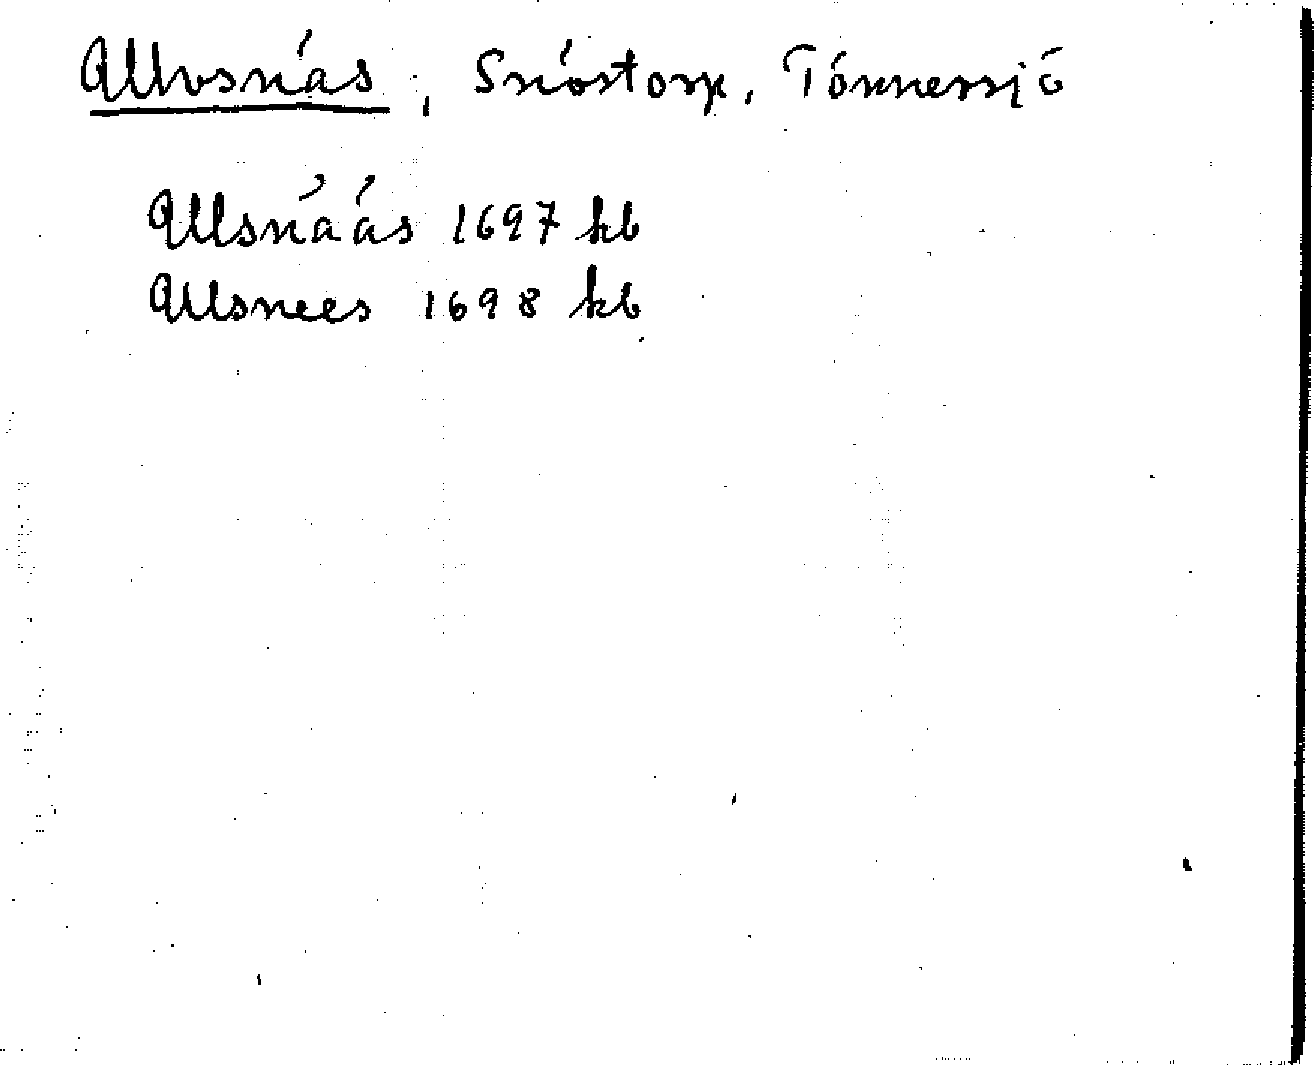 Allvosnäs, Snöstorp, Tönnersjö
Allsnääs 1697 kb
Allsnees 1698 kb